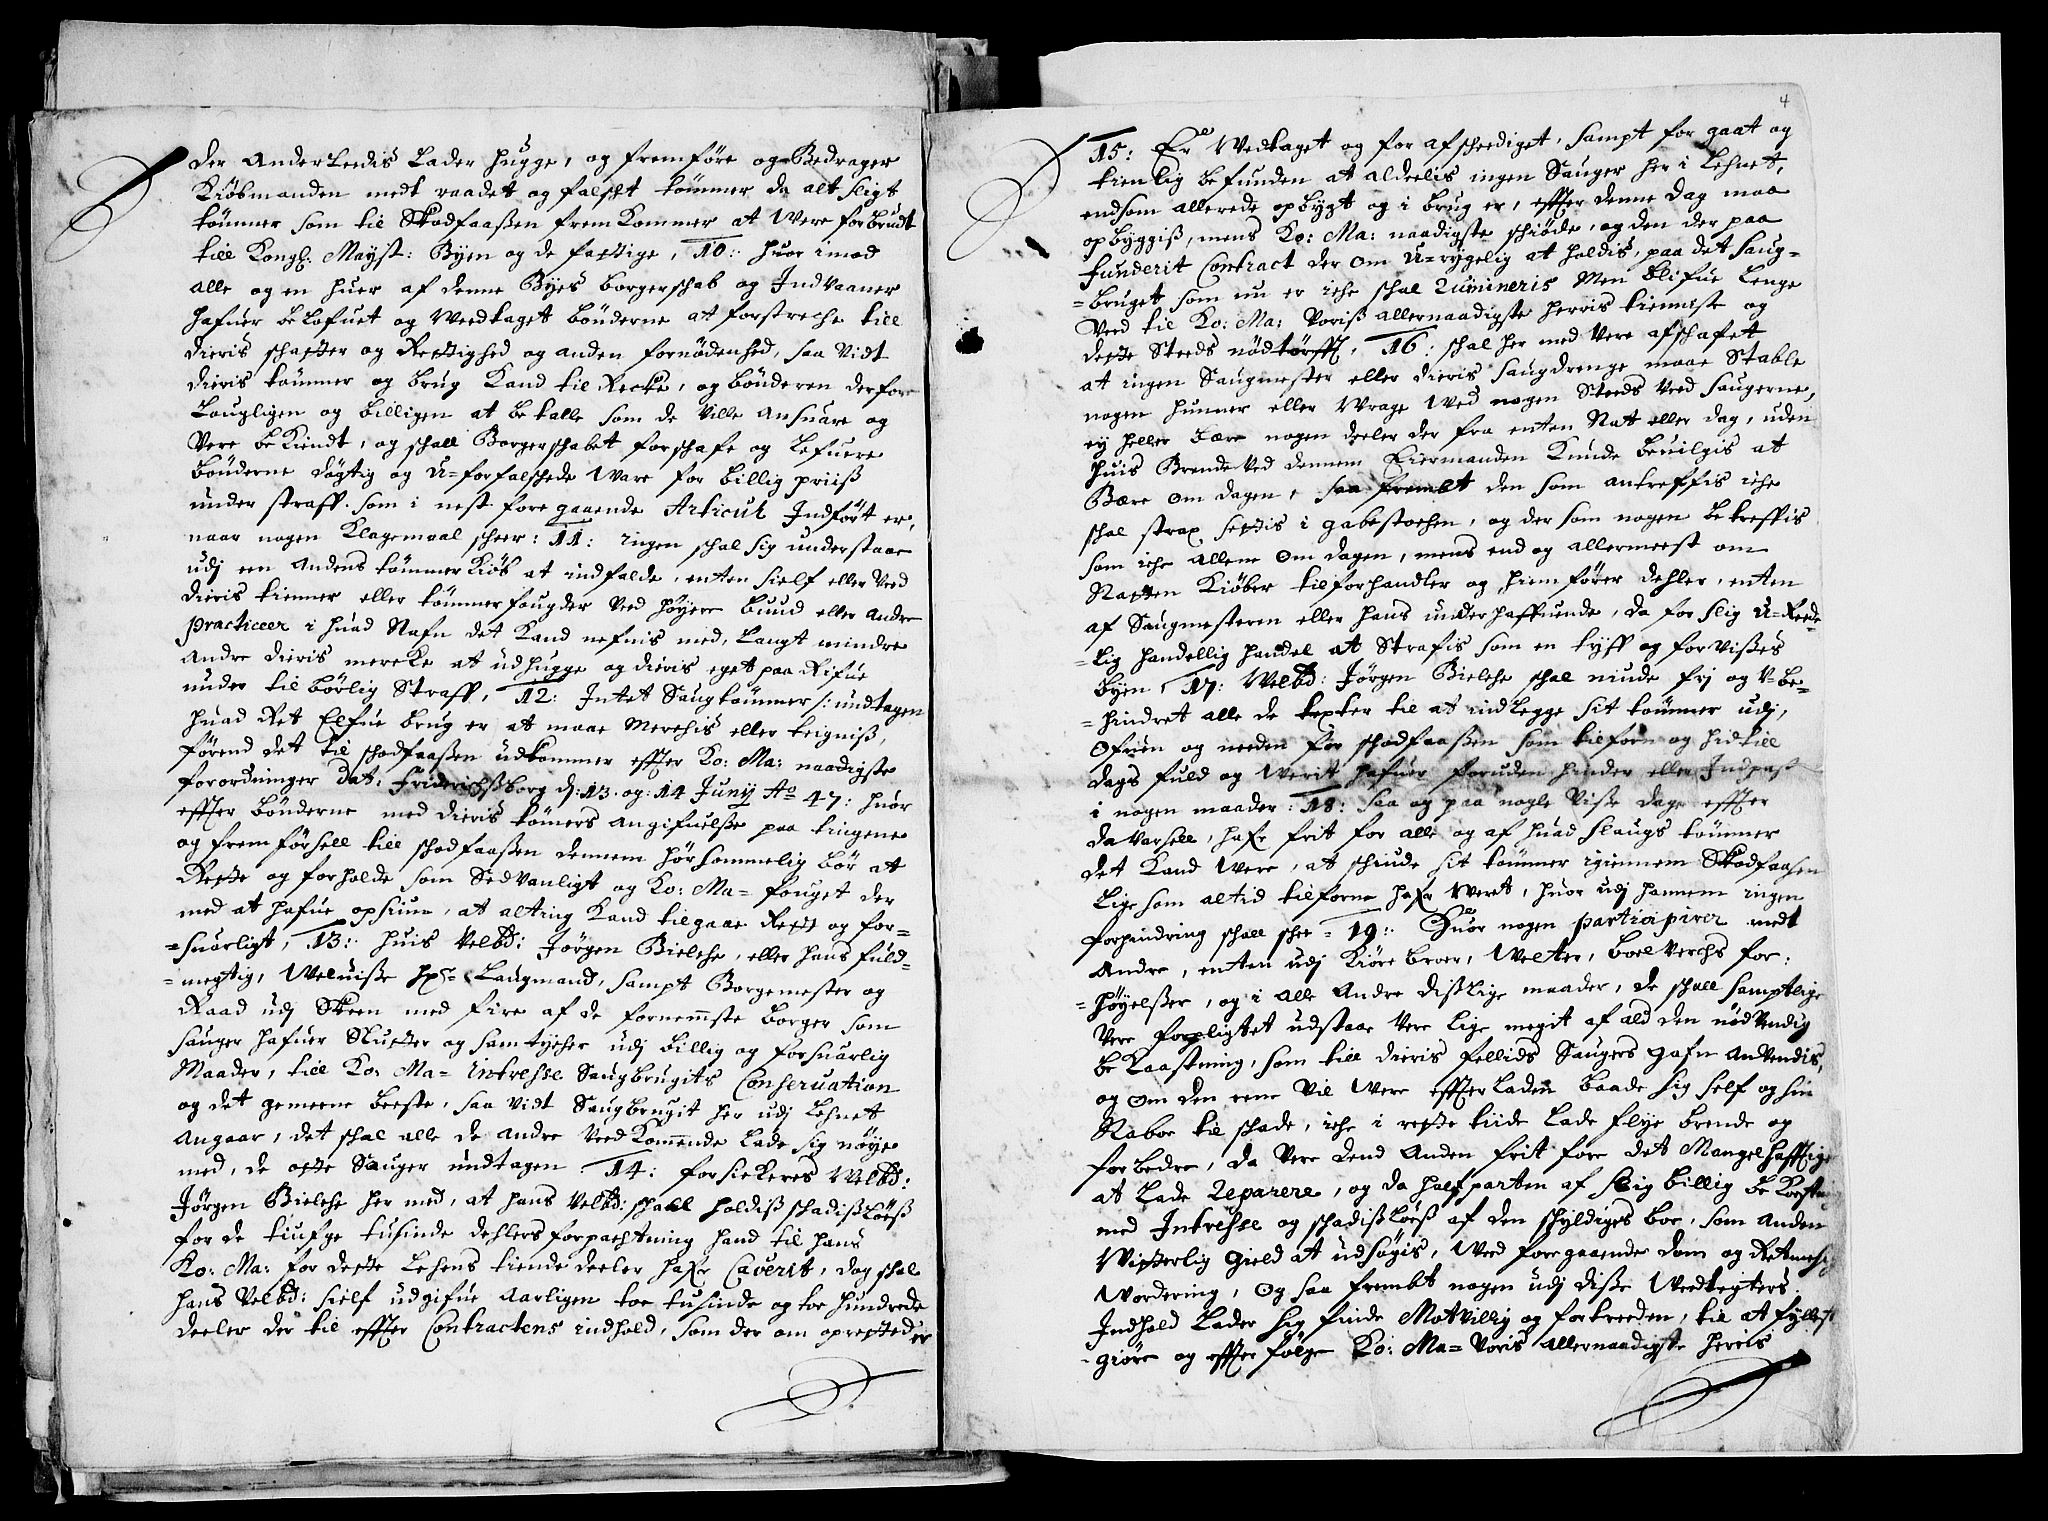 der Anderleedis lader hugge, og fremføre og Bedrager
Kiøbmanden medt raadet og falscht tømmer da alt sligt
tømmer som til Skodfaaßen fremkommer at Were forbrudt
till Kongl: Mayst: Byen og de fattige, 10: huor imod
alle og en huer af denne Byes borgerschab og Indvaaner
hafuer belofuet og Wedtaget bønderne at forstreche till
dieris schatter og Rettighed og anden fornødenhed, saa vidt
dieris tømmer og brug kand til Recke, og bønderen derfore
Lougligen og billigen at betalle som de ville ansuare og
Vere bekiendt, og schall Borgerschabet forschafe og lefuere
bønderne døgtig og U=forfalschede Ware for billig priiß
under straff som i nest foregaaende Articul Indført er,
naar nogen Klagemaal scheer: 11: ingen schal sig understaae
udj een andens tømmer Kiøb at indfalde, enten sielf eller ved
dieris tienner eller tømmerfougder ved høyere buud eller andre
practicer i huad Nafn det kand nefnis med, langt mindre
andre dieris mercke at udhugge og dieris eget paa Rifue
under tilbørlig Straff, 12: Intet Saugtømmer /: undtagen
huad Ret Elfue brug er at maae Merchis eller teigniß,
førend det til schodfaaßen udkommer effter Ko: Ma: naadigste
forordninger Dat: Friderichßborg d: 13. og: 14 Juny Ao 47: huor
effter bønderne med dieris tømers angifuelße paa tingene
og fremførsell till schodfaaßen dennem hørsommelig bør at
Rette og forholde som Sedvanligt og Ko: Ma= fouget der
med at hafue opsiun, at alting Kand tilgaae Rett og for=
=suarligt, 13: huis Velbd: Jørgen Bielche, eller hans fuld=
=megtig, Weluiße Laugmand, sampt Borgemester og
Raad udj Skeen med fire af de fornemmste borger som
sauger hafuer Slutter og samtycher udj billig og forsuarlig
Maader, till Ko: Ma= Intresse Saugbrugits Conseruation
og det gemeene beste, saa vidt Saugbrugit her udj Lehnet
angaar, det schal alle de andre Vedkommende lade sig nøye
med, de otte Sauger undtagen 14: forsickeres Velbd:
Jørgen Bielche her med, at hans Velbd: schall holdiß schadißløeß
for de tiufge tusinde dehlers forpachtning hand til hans
Ko: Ma: for dette Lehens tiende deeler hafr Caverit, dog schal
hans Velbd: sielf udgifue aarligen toe tusinde og toe hundrede
deeler der til effter Contractens indhold, som der om oprettede er
4
15: Er Wedtaget og for afscheediget, sampt for gaat og
tienlig befunden at aldeelis ingen Sauger her i Lehnet,
endsom allerede opbygt og i brug er, effter denne dag maa
opbyggiß, mens Ko: Ma: naadigste schiøde, og den der paa
funderit Contract der om U=rygelig at holdis, paa det Saug=
=bruget som nu er iche schal Ruineris Men blifue lenge
Ved til Ko: Ma: Voriß allernaadigste herris tienniste og
dette Steeds nødtørfft, 16: schal her med Vere afschafet
at ingen Saugmester eller dieris saugdrenge maae Stable
nogen hunner eller Wrage Wed nogen Steeds ved saugerne,
ey heller bære nogen deeler der fra enten Nat eller dag, uden
huis Brendeved dennem Eiermanden kunde beuilgis at
Bære om dagen, saa frembt den som antreffis iche
schal strax settis i gabestochen, og der som nogen betreffis
som iche allene om dagen, mens end og allermeest om
Natten Kiøber tilforhandler og hiemfører dehler, enten
af Saugmesteren eller hans underhaffuende, da for slig U=Rede=
=lig handellig handel at Strafis som en tyff og forvißes
byen, 17: Welbd: Jørgen Bielche schal niude frj og V=be=
=hindret alle de texter til at indlegge sit tømmer udj,
Ofven og neden for schodfaaßen som tilforn og hidtill
dags fuld og Werit hafuer foruden hinder eller Indpas
i nogen maader: 18: saa og paa nogle Viße dage effter
da varsell, hafr frit for alle og af huad slaugs tømmer
det kand Were, at schiude sit tømmer igiennem Skodfaasen
Lige som altid tilforne hafr Weret, huor udj hannem ingen
forhindring schall schee= 19: Huor nogen participerer medt
Andre, enten udj Kiørebroer, Welter, boelverchs for:
=høyelßer, og i alle Andre dißlige maader, de schall samptlige
Vere forpligtet udstaae Vere lige megit af ald den nødvendig
bekaastning, som till dieris fellids Saugers gafn anvendis,
og om den eene vil Were effterladen baade sig self og sin
Naboe til schade, iche i rette tiide lade flye bende og
forbedre, da Vere dend anden frit fore det Mangelhafftige
at lade Reparere, og da halfparten af slig billig bekostni
med Intresse og schadißløeß af den schyldiges boe, som anden
Witterlig gield at udsøgis, Wed foregaaende dom og Retmesi
Wordering, Og saa frembt nogen udj diße Wedtegters
Indhold lader sig finde Motvillig og fortreeden, til at fyllest
giøre og effterfølge Ko: Ma= Voris allernaadigste herris